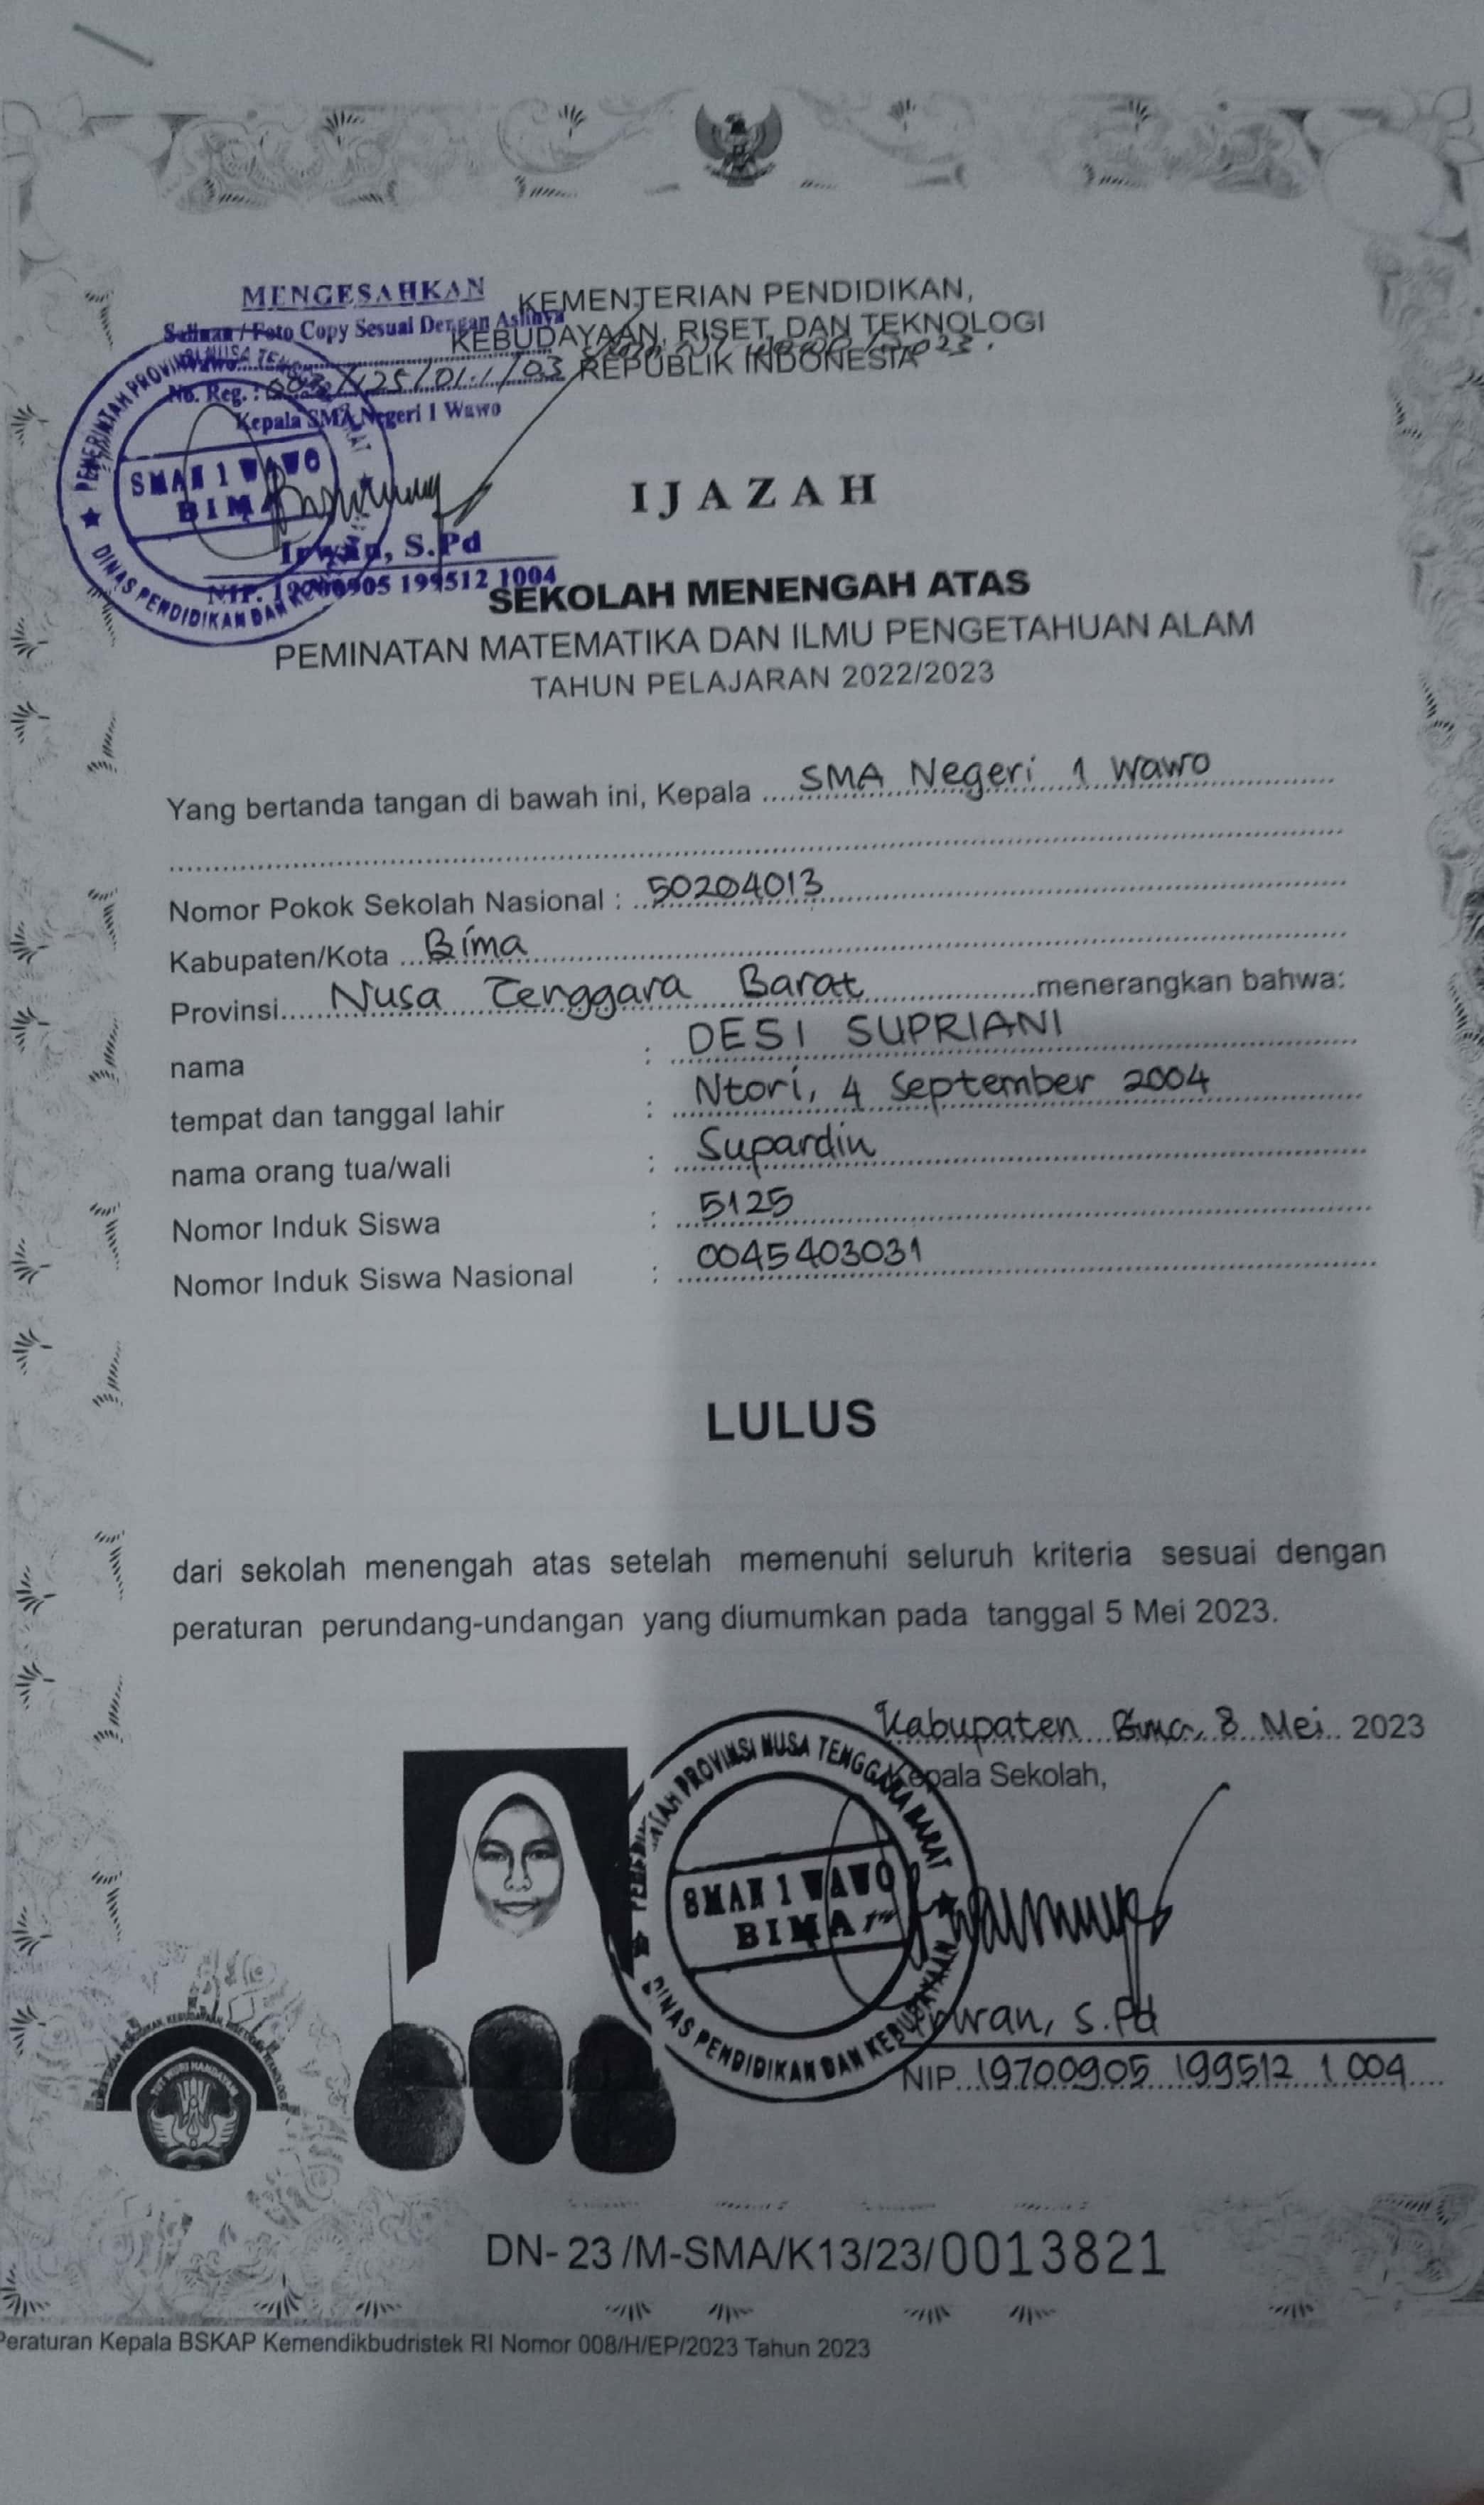 MENGESAHKAN
Salinan / Foto Copy Sesuai Dengan Aslinya
Wawo
No. Reg. : /125/01.1/03
Kepala SMA Negeri 1 Wawo
PEMERINTAH PROVINSI NUSA TENGGARA BARAT
SMAN 1 WAWO
BIMA
DINAS PENDIDIKAN DAN
Irwan, S.Pd
NIP. 19700905 199512 1004
KEMENTERIAN PENDIDIKAN,
KEBUDAYAAN, RISET, DAN TEKNOLOGI
REPUBLIK INDONESIA
IJAZAH
SEKOLAH MENENGAH ATAS
PEMINATAN MATEMATIKA DAN ILMU PENGETAHUAN ALAM
TAHUN PELAJARAN 2022/2023
Yang bertanda tangan di bawah ini, Kepala SMA Negeri 1 Wawo
Nomor Pokok Sekolah Nasional : 50204013
Kabupaten/Kota Bima
Provinsi Nusa Tenggara Barat menerangkan bahwa:
nama : DESI SUPRIANI
tempat dan tanggal lahir : Ntori, 4 September 2004
nama orang tua/wali : Supardin
Nomor Induk Siswa : 5125
Nomor Induk Siswa Nasional : 0045403031
LULUS
dari sekolah menengah atas setelah memenuhi seluruh kriteria sesuai dengan
peraturan perundang-undangan yang diumumkan pada tanggal 5 Mei 2023.
Kabupaten Bima, 8 Mei 2023
Kepala Sekolah,
PEMERINTAH PROVINSI NUSA TENGGARA BARAT
SMAN 1 WAWO
BIMA
DINAS PENDIDIKAN DAN KEBUDAYAAN
Irwan, S.Pd
NIP 19700905 199512 1 004
TUT WURI HANDAYANI
DN-23/M-SMA/K13/23/0013821
Peraturan Kepala BSKAP Kemendikbudristek RI Nomor 008/H/EP/2023 Tahun 2023